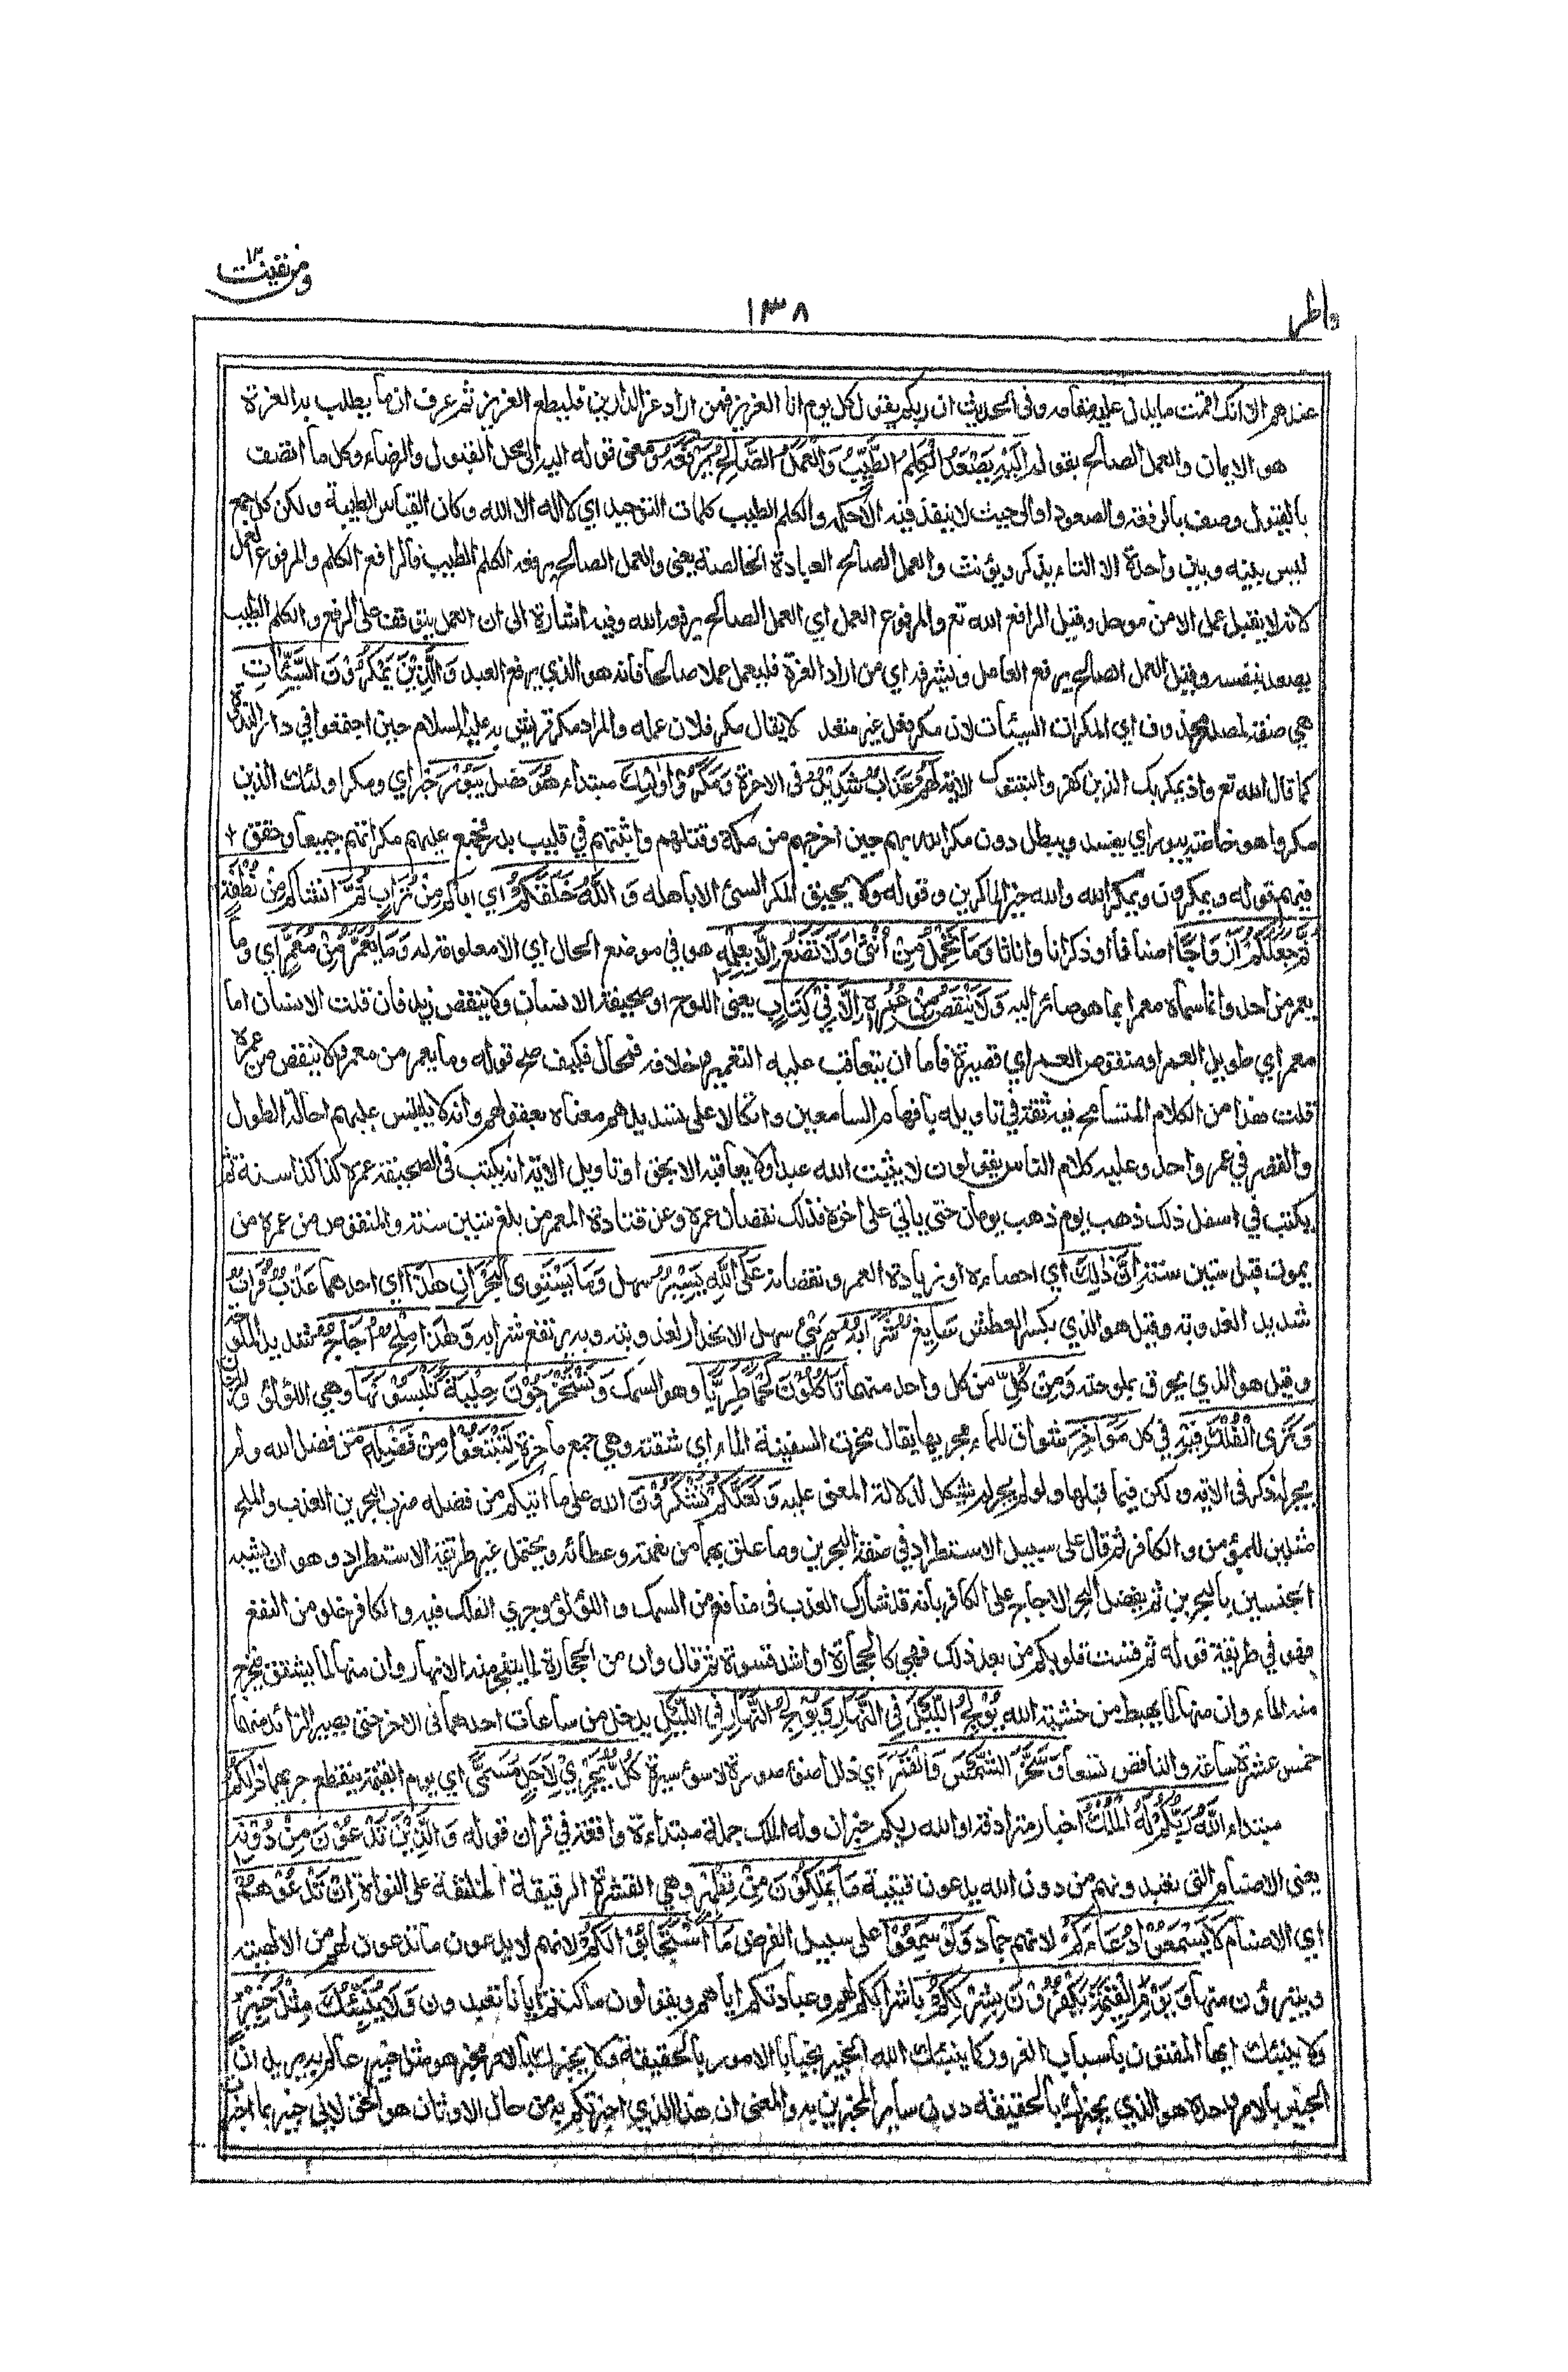 ومن يقنت ١٢
١٣٨
فاطر
عندهم الا انك اقمت ما يدل عليه مقامه وفى الحديث ان ربكم يقول كل يوم انا العزيز فمن اراد عز الدارين فليطع العزيز ثم عرف ان ما يطلب به العزة
هو الايمان والعمل الصالح بقوله اِلَيْهِ يَصْعَدُ الْكَلِمُ الطَّيِّبُ وَالْعَمَلُ الصَّالِحُ يَرْفَعُهٗ ومعنى قوله اليه الى محل القبول والرضاء وكل ما اتصف
بالقبول وصف بالرفعة والصعود او الى حيث لا ينفذ فيه الا حكمه والكلم الطيب كلمات التوحيد اي لا اله الا الله وكان القياس الطيبة ولكن كل جمع
ليس بينه وبين واحدة الا التاء يذكر ويؤنث والعمل الصالح العبادة الخالصة يعنى والعمل الصالح يرفعه الكلم الطيب فالرافع الكلم والمرفوع العمل
لانه لا يقبل عمل الا من موحد وقيل الرافع الله تع والمرفوع العمل اي العمل الصالح يرفعه الله وفيه اشارة الى ان العمل يتوقف على الرفع والكلم الطيب
يصعد بنفسه وقيل العمل الصالح يرفع العامل ويشرفه اي من اراد العزة فليعمل عملا صالحا فانه هو الذي يرفع العبد وَالَّذِيْنَ يَمْكُرُوْنَ السَّيِّاٰتِ
هي صفة لمصدر محذوف اي المكرات السيئات لان مكر فعل غير متعد لا يقال مكر فلان عمله والمراد مكر قريش به عليه السلام حين اجتمعوا في دار الندوة
كما قال الله تع واذ يمكر بك الذين كفروا ليثبتوك الاية لَهُمْ عَذَابٌ شَدِيْدٌ فى الاخرة وَمَكْرُ اُولٰٓئِكَ مبتداء هُوَ فصل يَبُوْرُ خبر اي ومكر اولئك الذين
مكروا هو خاصة يبور اي يفسد ويبطل دون مكر الله بهم حين اخرجهم من مكة وقتلهم واثبتهم في قليب بدر فجمع عليهم مكراتهم جميعا وحقق
فيهم قوله ويمكرون ويمكر الله والله خير الماكرين وقوله ولا يحيق المكر السئ الا باهله وَاللّٰهُ خَلَقَكُمْ اي اباكم مِنْ تُرَابٍ ثُمَّ انشاكم مِنْ نُطْفَةٍ
ثُمَّ جَعَلَكُمْ اَزْوَاجًا اصنافا او ذكرانا واناثا وَمَا تَحْمِلُ مِنْ اُنْثٰى وَلَا تَضَعُ اِلَّا بِعِلْمِهٖ هو في موضع الحال اي الا معلومة له وَمَا يُعَمَّرُ مِنْ مُعَمَّرٍ اي وما
يعمر من احد وانما سماه معمرا بما هو صائر اليه وَلَا يُنْقَصُ مِنْ عُمُرِهٖ اِلَّا فِيْ كِتَابٍ يعنى اللوح او صحيفة الانسان ولا ينقص زيد فان قلت الانسان اما
معمر اي طويل العمر او منقوص العمر اي قصيرة فاما ان يتعاقب عليه التعمير وخلافه فمحال فكيف صح قوله وما يعمر من معمر ولا ينقص من عمره
قلت هذا من الكلام المتسامح فيه ثقة في تاويله بافهام السامعين واتكالا على تسديدهم معناه بعقولهم وانه لا يلتبس عليهم احالة الطول
والقصر في عمر واحد وعليه كلام الناس يقولون لا يثيب الله عبدا ولا يعاقبه الا بحق او تاويل الاية انه يكتب فى الصحيفة عمره كذا كذا سنة ثم
يكتب في اسفل ذلك ذهب يوم ذهب يومان حتى ياتي على اخره فذلك نقصان عمره وعن قتادة المعمر من بلغ ستين سنة والمنقوص من عمره من
يموت قبل ستين سنة اِنَّ ذٰلِكَ اي احصاءه او زيادة العمر ونقصانه عَلَى اللّٰهِ يَسِيْرٌ سهل وَمَا يَسْتَوِى الْبَحْرَانِ هٰذَا اي احدهما عَذْبٌ فُرَاتٌ
شديد العذوبة وقيل هو الذي يكسر العطش سَآئِغٌ شَرَابُهٗ مرئ سهل الانحدار لعذوبته وبه يرتفع شرابه وَهٰذَا مِلْحٌ اُجَاجٌ شديد الملوحة
وقيل هو الذي يحرق بملوحته وَمِنْ كُلٍّ من كل واحد منهما تَأْكُلُوْنَ لَحْمًا طَرِيًّا وهو السمك وَتَسْتَخْرِجُوْنَ حِلْيَةً تَلْبَسُوْنَهَا وهي اللؤلؤ والمرجان
وَتَرَى الْفُلْكَ فِيْهِ في كل مَوَاخِرَ شواق للماء بجريها يقال مخرت السفينة الماء اي شقته وهي جمع ماخرة لِتَبْتَغُوْا مِنْ فَضْلِهٖ من فضل الله ولم
يجر له ذكر فى الاية ولكن فيما قبلها ولو لم يجر لم يشكل لدلالة المعنى عليه وَلَعَلَّكُمْ تَشْكُرُوْنَ الله على ما اتيكم من فضله ضرب البحرين العذب والملح
مثلين للمؤمن والكافر ثم قال على سبيل الاستطراد في صفة البحرين وما علق بهما من نعمته وعطائه ويحتمل غير طريقة الاستطراد وهو ان يشبه
الجنسين بالبحرين ثم يفضل البحر الاجاج على الكافر بانه قد شارك العذب فى منافع من السمك واللؤلؤ وجري الفلك فيه والكافر خلو من النفع
فهو في طريقة قوله ثم قست قلوبكم من بعد ذلك فهي كالحجارة او اشد قسوة ثم قال وان من الحجارة لما يتفجر منه الانهار وان منها لما يشقق فيخرج
منه الماء وان منها لما يهبط من خشية الله يُوْلِجُ الَّيْلَ فِى النَّهَارِ وَيُوْلِجُ النَّهَارَ فِى الَّيْلِ يدخل من ساعات احدهما فى الاخر حتى يصير الزائد منهما
خمس عشرة ساعة والناقص تسعا وَسَخَّرَ الشَّمْسَ وَالْقَمَرَ اي ذلل اضوء صورة لاسوئ سيرة كُلٌّ يَّجْرِيْ لِاَجَلٍ مُسَمًّى اي يوم القيمة ينقطع جريهما ذٰلِكُمُ
مبتداء اللّٰهُ رَبُّكُمْ لَهُ الْمُلْكُ اخبار مترادفة او الله ربكم خبران وله الملك جملة مبتداءة واقعة في قران قوله وَالَّذِيْنَ تَدْعُوْنَ مِنْ دُوْنِهٖ
يعنى الاصنام التي تعبدونهم من دون الله يدعون قتيبة مَا يَمْلِكُوْنَ مِنْ قِطْمِيْرٍ وهي القشرة الرقيقة الملتفة على النواة اِنْ تَدْعُوْهُمْ
اي الاصنام لَا يَسْمَعُوْا دُعَآءَكُمْ لانهم جماد وَلَوْ سَمِعُوْا على سبيل الفرض مَا اسْتَجَابُوْا لَكُمْ لانهم لا يدعون ما تدعون لهم من الالهية
ويتبرؤن منها وَيَوْمَ الْقِيٰمَةِ يَكْفُرُوْنَ بِشِرْكِكُمْ باشراككم لهم وعبادتكم اياهم ويقولون ما كنتم ايانا تعبدون وَلَا يُنَبِّئُكَ مِثْلُ خَبِيْرٍ
ولا ينبئك ايها المفتون باسباب الغرور كما ينبئك الله الخبير بخبايا الامور بالحقيقة ولا يخبرك بالامر مخبر هو مثل خبير عالم به يريد ان
الخبير بالامر وحده هو الذي يخبرك بالحقيقة دون سائر المخبرين به والمعنى ان هذا الذي اخبرتكم به من حال الاوثان هو الحق لاني خبير بما اخبرت